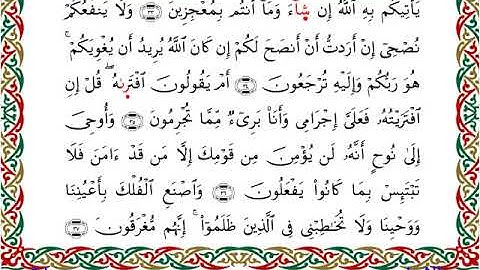 يَأْتِيكُم بِهِ ٱللَّهُ إِن شَآءَ وَمَآ أَنتُم بِمُعْجِزِينَ ۝٣٣ وَلَا يَنفَعُكُمْ
نُصْحِىٓ إِنْ أَرَدتُّ أَنْ أَنصَحَ لَكُمْ إِن كَانَ ٱللَّهُ يُرِيدُ أَن يُغْوِيَكُمْ ۚ
هُوَ رَبُّكُمْ وَإِلَيْهِ تُرْجَعُونَ ۝٣٤ أَمْ يَقُولُونَ ٱفْتَرَىٰهُ ۖ قُلْ إِنِ
ٱفْتَرَيْتُهُۥ فَعَلَىَّ إِجْرَامِى وَأَنَا۠ بَرِىٓءٌ مِّمَّا تُجْرِمُونَ ۝٣٥ وَأُوحِىَ
إِلَىٰ نُوحٍ أَنَّهُۥ لَن يُؤْمِنَ مِن قَوْمِكَ إِلَّا مَن قَدْ ءَامَنَ فَلَا
تَبْتَئِسْ بِمَا كَانُوا۟ يَفْعَلُونَ ۝٣٦ وَٱصْنَعِ ٱلْفُلْكَ بِأَعْيُنِنَا
وَوَحْيِنَا وَلَا تُخَـٰطِبْنِى فِى ٱلَّذِينَ ظَلَمُوٓا۟ ۚ إِنَّهُم مُّغْرَقُونَ ۝٣٧